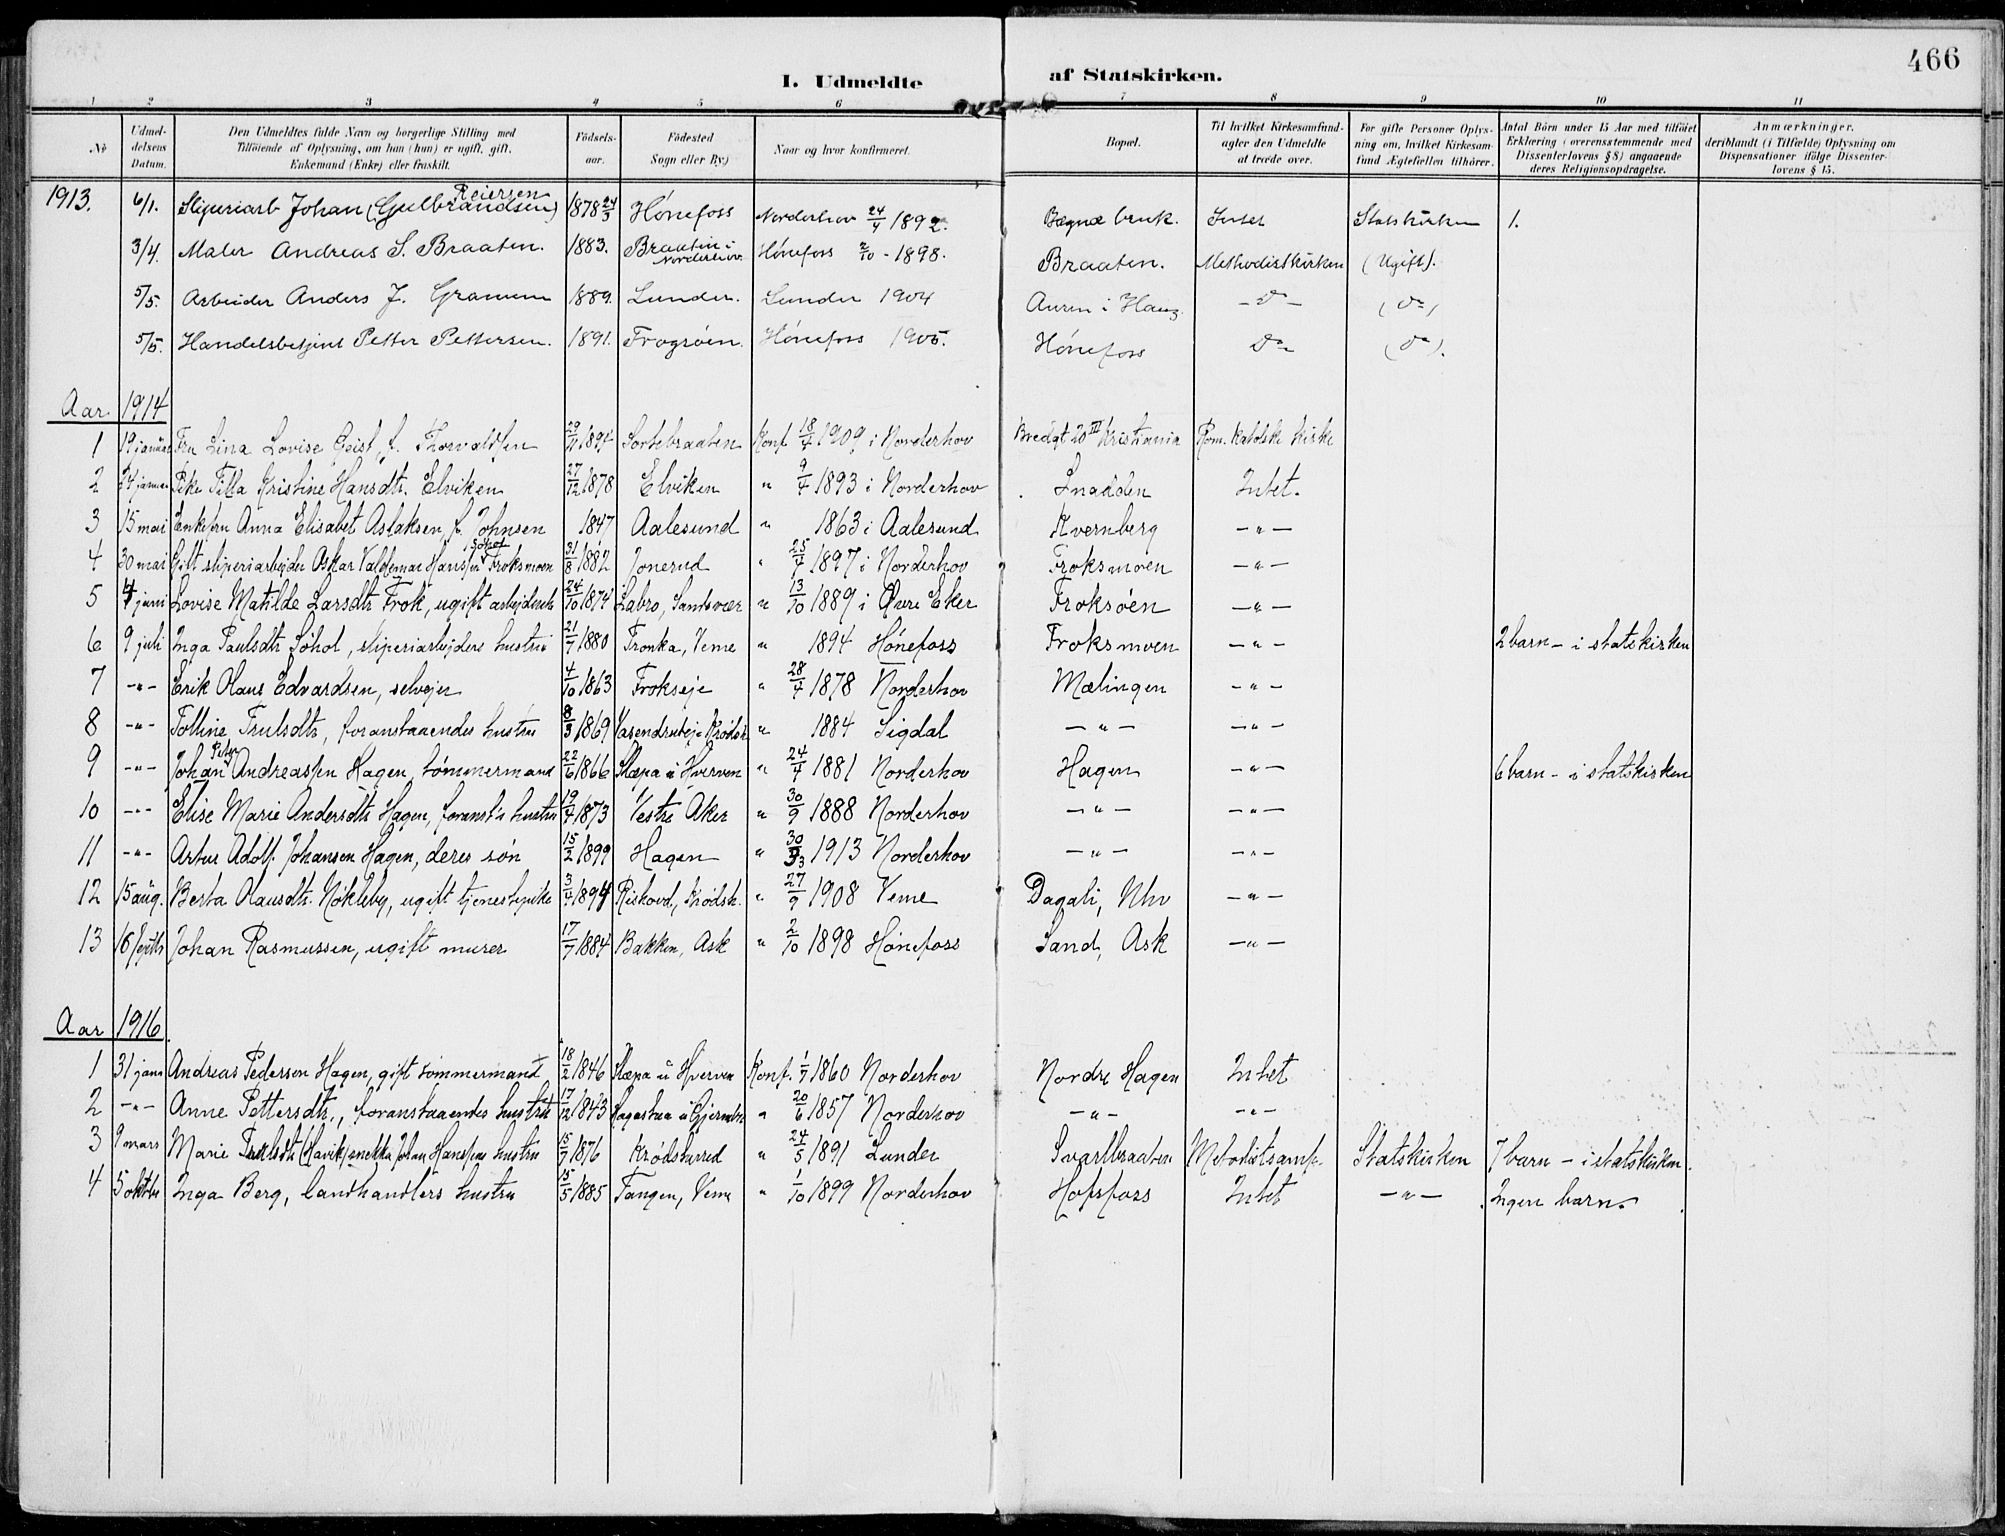 466
I. Udmeldte af Statskirken.
1 2 3 4 5 6 7 8 9 10 11
№ | Udmel-delsens Datum. | Den Udmeldtes fulde Navn og borgerlige Stilling med Tilföiende af Oplysning, om han (hun) er ugift, gift, Enkemand (Enke) eller fraskilt. | Födsels-aar. | Födested Sogn eller By.) | Naar og hvor konfirmeret. | Bopæl. | Til hvilket Kirkesamfund agter den Udmeldte at træde over. | For gifte Personer Oplys-ning om, hvilket Kirkesam-fund Ægtefællen tilhörer. | Antal Börn under 15 Aar med tilföiet Erklæring (overensstemmende med Dissenterlovens § 8) angaaende deres Religionsopdragelse. | Anmærkninger, deriblandt (i Tilfælde) Oplysning om Dispensationer ifölge Dissenter-lovens § 15.
Reiersen
1913. 6/1. Sliperiarb Johan (Gulbrandsen) 1878 24/3 Hónefoss Norderhov 24/4 1892. Bægna bruk. Intet Statskirken 1.
3/4. Maler Andreas S. Braaten. 1883. Braaten i Norderhov Hónefoss 2/10 - 1898. Braaten. Methodistkirken (Ugift).
5/5. Arbeider Anders J. 1889. Lunder. Lunder 1904 Auren i Haug - do - (do)
5/5. Handelsbetjent Petter Pettersen. 1891. Frogsóen. Hónefoss 1905. Hónefoss do (do).
Aar 1914
1 19 januar Fru Lina Lovise Geist, f. Thorvaldsen 29/11 1894 Sortebraaten Konf 18/4 1909 i Norderhov Bredgt 20 III Kristiania Rom. Katolske kirke
2 24 januar Pike Tilla Kristine Hansdtr. Elviken 27/12 1878 Elviken " 9/4 1893 i Norderhov Snadden Intet.
3 15 mai Enkefru Anna Elisabet Aslaksen f. Johnsen 1847 Aalesund " 1863 i Aalesund Kvernberg - " -
Sóhol
4 30 mai Gift sliperiarbeider Oskar Valdemar Hansen Froksmoen 31/8 1882 Jonerud " 25/4 1897 i Norderhov Froksmoen - " -
5 4 juni Lovise Matilde Larsdtr Frok, ugift arbeiderske 24/10 1874 Labro, Sandsvær " 13/10 1889 i Øvre Eker Froksóen - " -
6 9 juli Inga Paulsdtr Sóhol, sliperiarbeiders hustru 21/7 1880 Tronka, Veme " 1894 Hónefoss Froksmoen - " - 2 barn - i statskirken
7 - " - Erik Olaus Edvardsen, selveier 4/10 1863 Frokseje " 28/4 1878 Norderhov Mælingen - " -
8 - " - Tolline Trulsdtr, foranstaaendes hustru 8/3 1869 Krødsh. " 1884 Sigdal - " - - " -
Peter
9 - " - Johan Andreassen Hagen, tómmermand 22/6 1866 Slæpa u Hverven " 24/4 1881 Norderhov Hagen - " - 6 barn - i statskirken
10 - " - Elise Marie Andersdtr Hagen, foranst.s hustru 19/4 1873 Vestre Aker " 30/9 1888 Norderhov - " - - " -
11 - " - Artur Adolf Johansen Hagen, deres són 15/2 1899 Hagen " 30/3 1913 Norderhov - " - - " -
12 15 aug. Berta Olausdtr. Nókleby, ugift tjenestepike 3/4 1894 Riskovd, Krødsh. " 27/9 1908 Veme Dagali, Nhv - " -
13 16 septbr Johan Rasmussen, ugift murer 17/7 1884 Bakken, Ask " 2/10 1898 Hónefoss Sand, Ask - " -
Aar 1916
1 31 jan Andreas Pedersen Hagen, gift tómmermand 18/2 1846 Slæpa u Hverven Konf. 1/7 1860 Norderhov Nordre Hagen Intet
2 - " - Anne Pettersdtr., foranstaaendes hustru 17/12 1843 Hagastua u Gjermundbo " 20/6 1857 Norderhov - " - - " -
3 9 mars Marie Trulsdtr (Havik) snekker Johan Hansens hustru 15/7 1876 Krødsherred " 24/5 1891 Lunder Svartbraaten Metodistsamf. Statskirken 7 barn - i statskirken
4 5 oktbr Inga Berg, landhandlers hustru 15/5 1885 Tangen, Veme " 1/10 1899 Norderhov Hofsfoss Intet - " - Ingen barn.